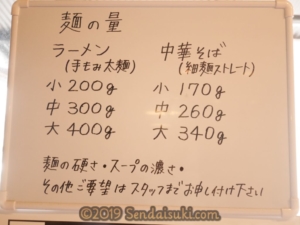 麺の量
ラーメン 中華そば
(手もみ太麺) (細麺ストレート)
小 200g 小 170g
中 300g 中 260g
大 400g 大 340g
麺の硬さ・スープの濃さ・
その他ご要望はスタッフまでお申し付け下さい
©2019 Sendaisuki.com